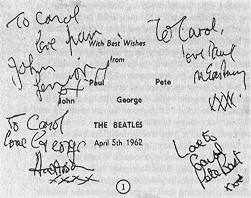 To Carol
love from
With Best Wishes
from
John
Lennon
Paul Pete
John George
To Carol,
love Paul
McCartney
XXX.
To Carol
love George
Harrison
xxxx
THE BEATLES
April 5th 1962
Love to
Carol
Pete Best
xxx
1